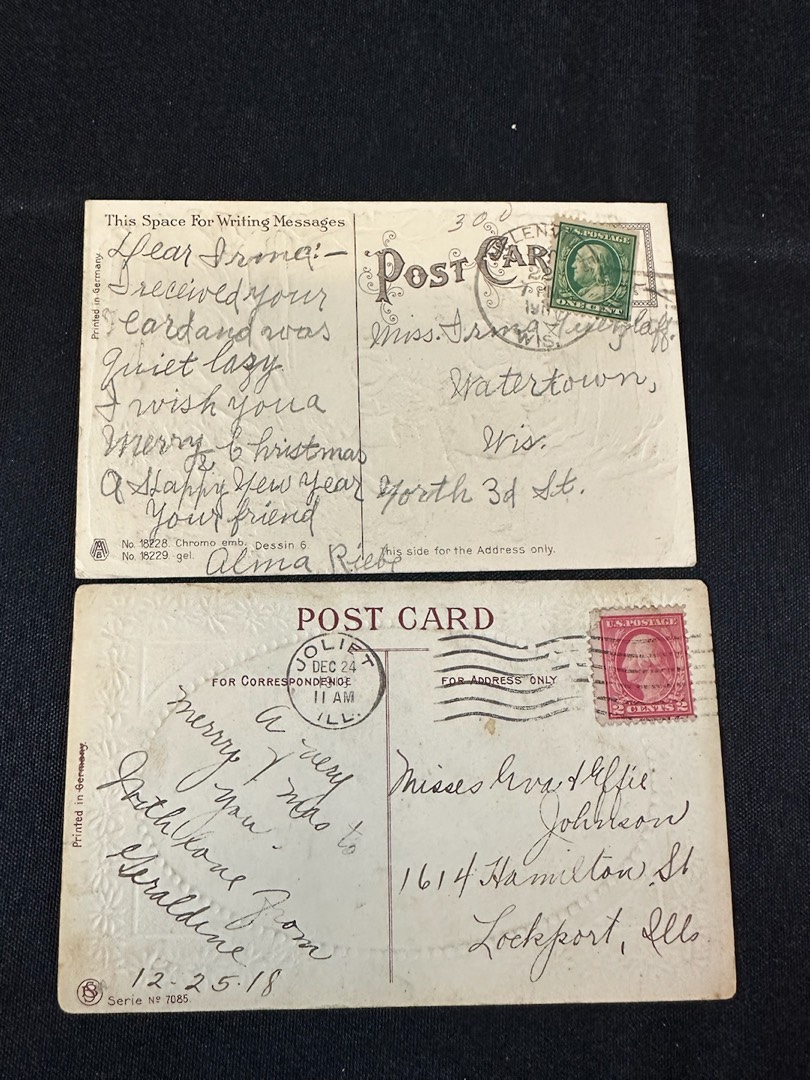 This Space For Writing Messages
Printed in Germany.
Dear Irma:—
I received your
card and was
quiet lazy
I wish you a
Merry Christmas
&
A Happy New Year
Your friend
Alma Riebe
No. 18228. Chromo emb. Dessin 6
No. 18229. gel.
300
POST CARD
U.S. POSTAGE
ONE CENT
WIS.
Miss. Irma
Watertown,
Wis.
North 3d St.
This side for the Address only.
POST CARD
JOLIET
DEC 24
11 AM
ILL.
U.S. POSTAGE
2 CENTS 2
FOR CORRESPONDENCE
FOR ADDRESS ONLY
Printed in Germany.
A very
merry Xmas to
you.
With love from
Geraldine
12-25-18
Serie No 7085
Misses Eva & Effie
Johnson
1614 Hamilton St
Lockport, Ills